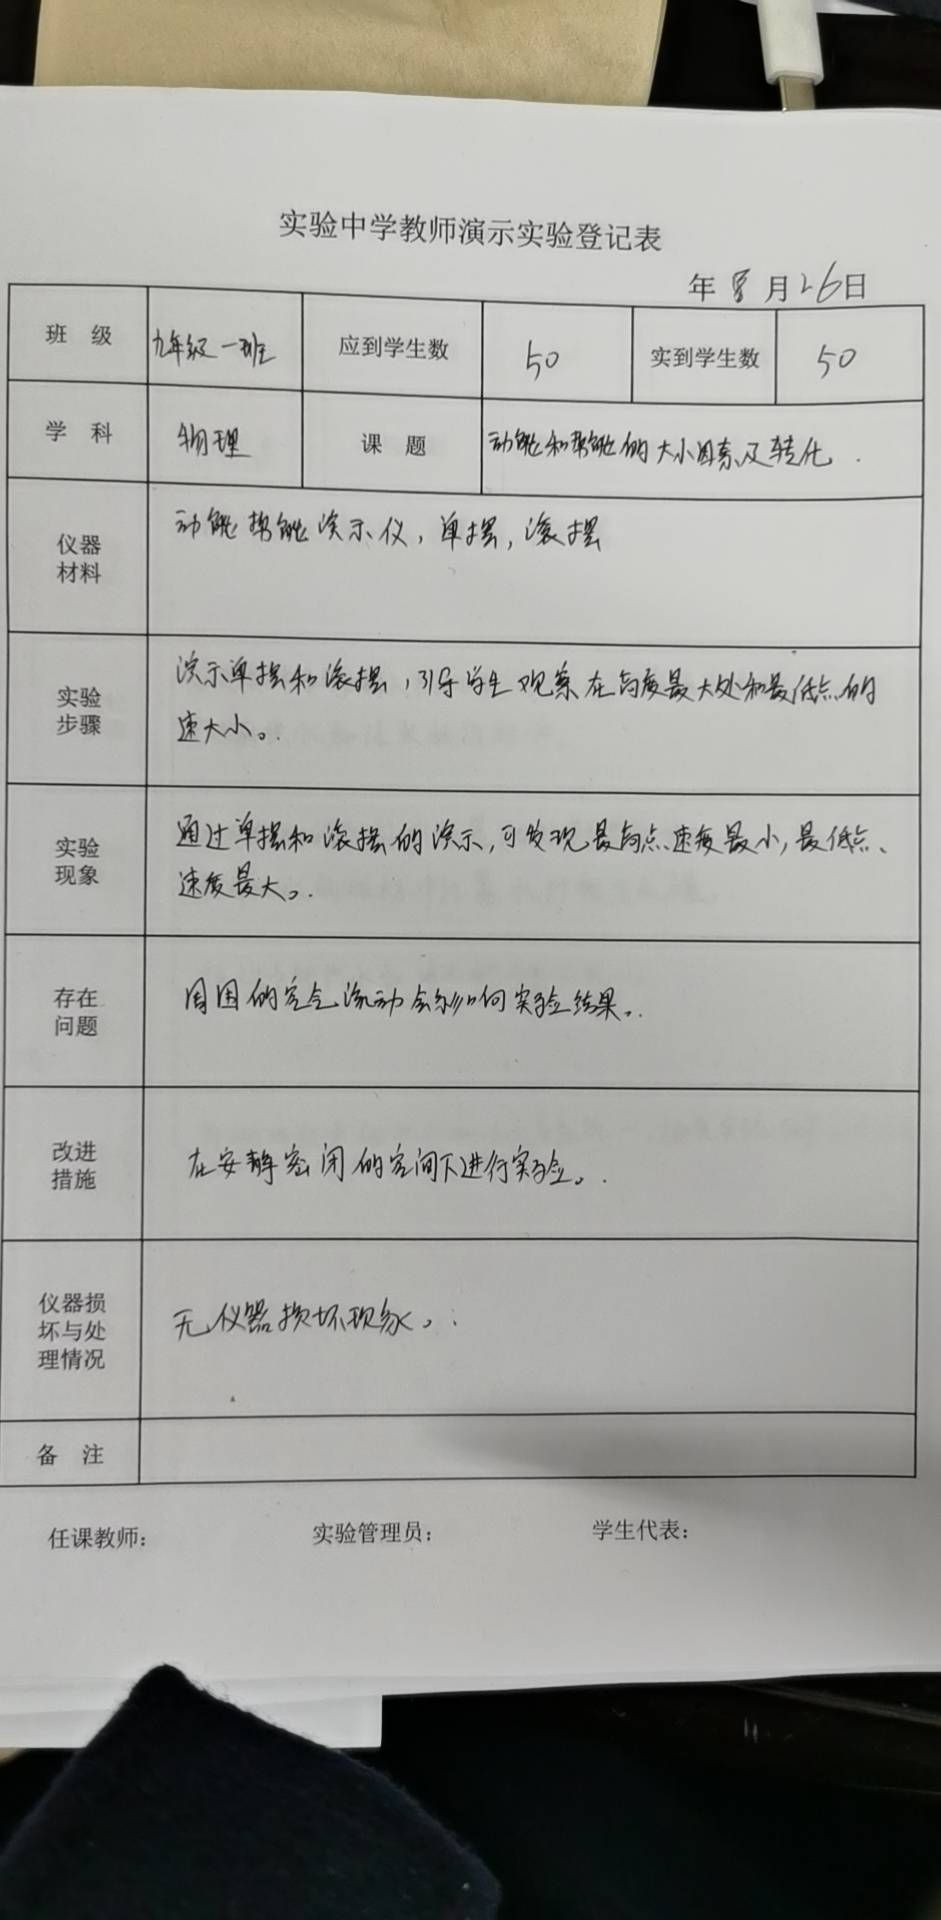 实验中学教师演示实验登记表
年 8 月 26日
班 级 九年级一班 应到学生数 50 实到学生数 50
学 科 物理 课 题 动能和势能的大小因素及转化.
仪器材料 动能势能演示仪,单摆,滚摆
实验步骤 演示单摆和滚摆,引导学生观察在高度最大处和最低点的
速大小。
实验现象 通过单摆和滚摆的演示,可发现最高点速度最小,最低点、
速度最大。
存在问题 周围的空气流动会影响实验结果。
改进措施 在安静密闭的空间下进行实验。
仪器损坏与处理情况 无仪器损坏现象。
备 注
任课教师: 实验管理员: 学生代表: